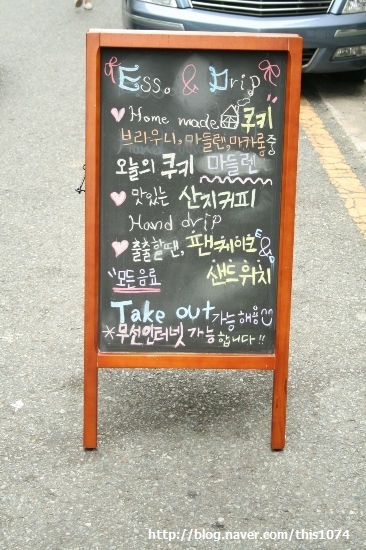 Ess. & Drip
Home made 쿠키"
브라우니, 마들렌, 마카롱 중
오늘의 쿠키 마들렌
맛있는 산지커피
Hand drip
출출할땐, 팬케이크 &
"모든음료 샌드위치
Take out 가능해용
*무선인터넷 가능합니다!!
http://blog.naver.com/this1074